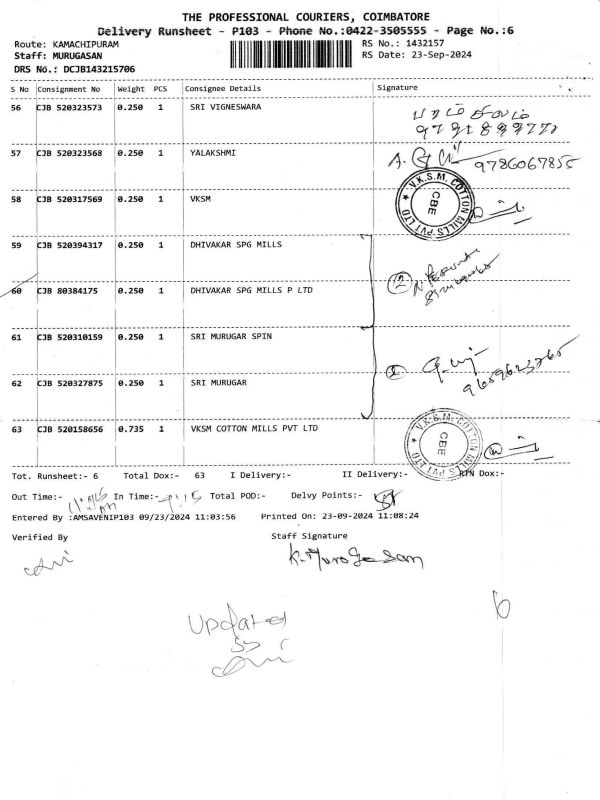 THE PROFESSIONAL COURIERS, COIMBATORE
Delivery Runsheet - P103 - Phone No.:0422-3505555 - Page No.:6
Route: KAMACHIPURAM
RS No.: 1432157
Staff: MURUGASAN
RS Date: 23-Sep-2024
DRS No.: DCJB143215706
S No Consignment No Weight PCS Consignee Details Signature
56 CJB 520323573 0.250 1 SRI VIGNESWARA
57 CJB 520323568 0.250 1 YALAKSHMI 9786067855
58 CJB 520317569 0.250 1 VKSM
V.K.S.M. COTTON MILLS PVT LTD
CBE
59 CJB 520394317 0.250 1 DHIVAKAR SPG MILLS
60 CJB 80384175 0.250 1 DHIVAKAR SPG MILLS P LTD
61 CJB 520310159 0.250 1 SRI MURUGAR SPIN
62 CJB 520327875 0.250 1 SRI MURUGAR
63 CJB 520158656 0.735 1 VKSM COTTON MILLS PVT LTD
V.K.S.M. COTTON MILLS PVT LTD
CBE
Tot. Runsheet:- 6 Total Dox:- 63 I Delivery:- II Delivery:- RTN Dox:-
Out Time:- In Time:- 9:15 Total POD:- Delvy Points:-
Entered By :AMSAVENIP103 09/23/2024 11:03:56 Printed On: 23-09-2024 11:08:24
Verified By
Staff Signature
K. Murugesan
6
Updated